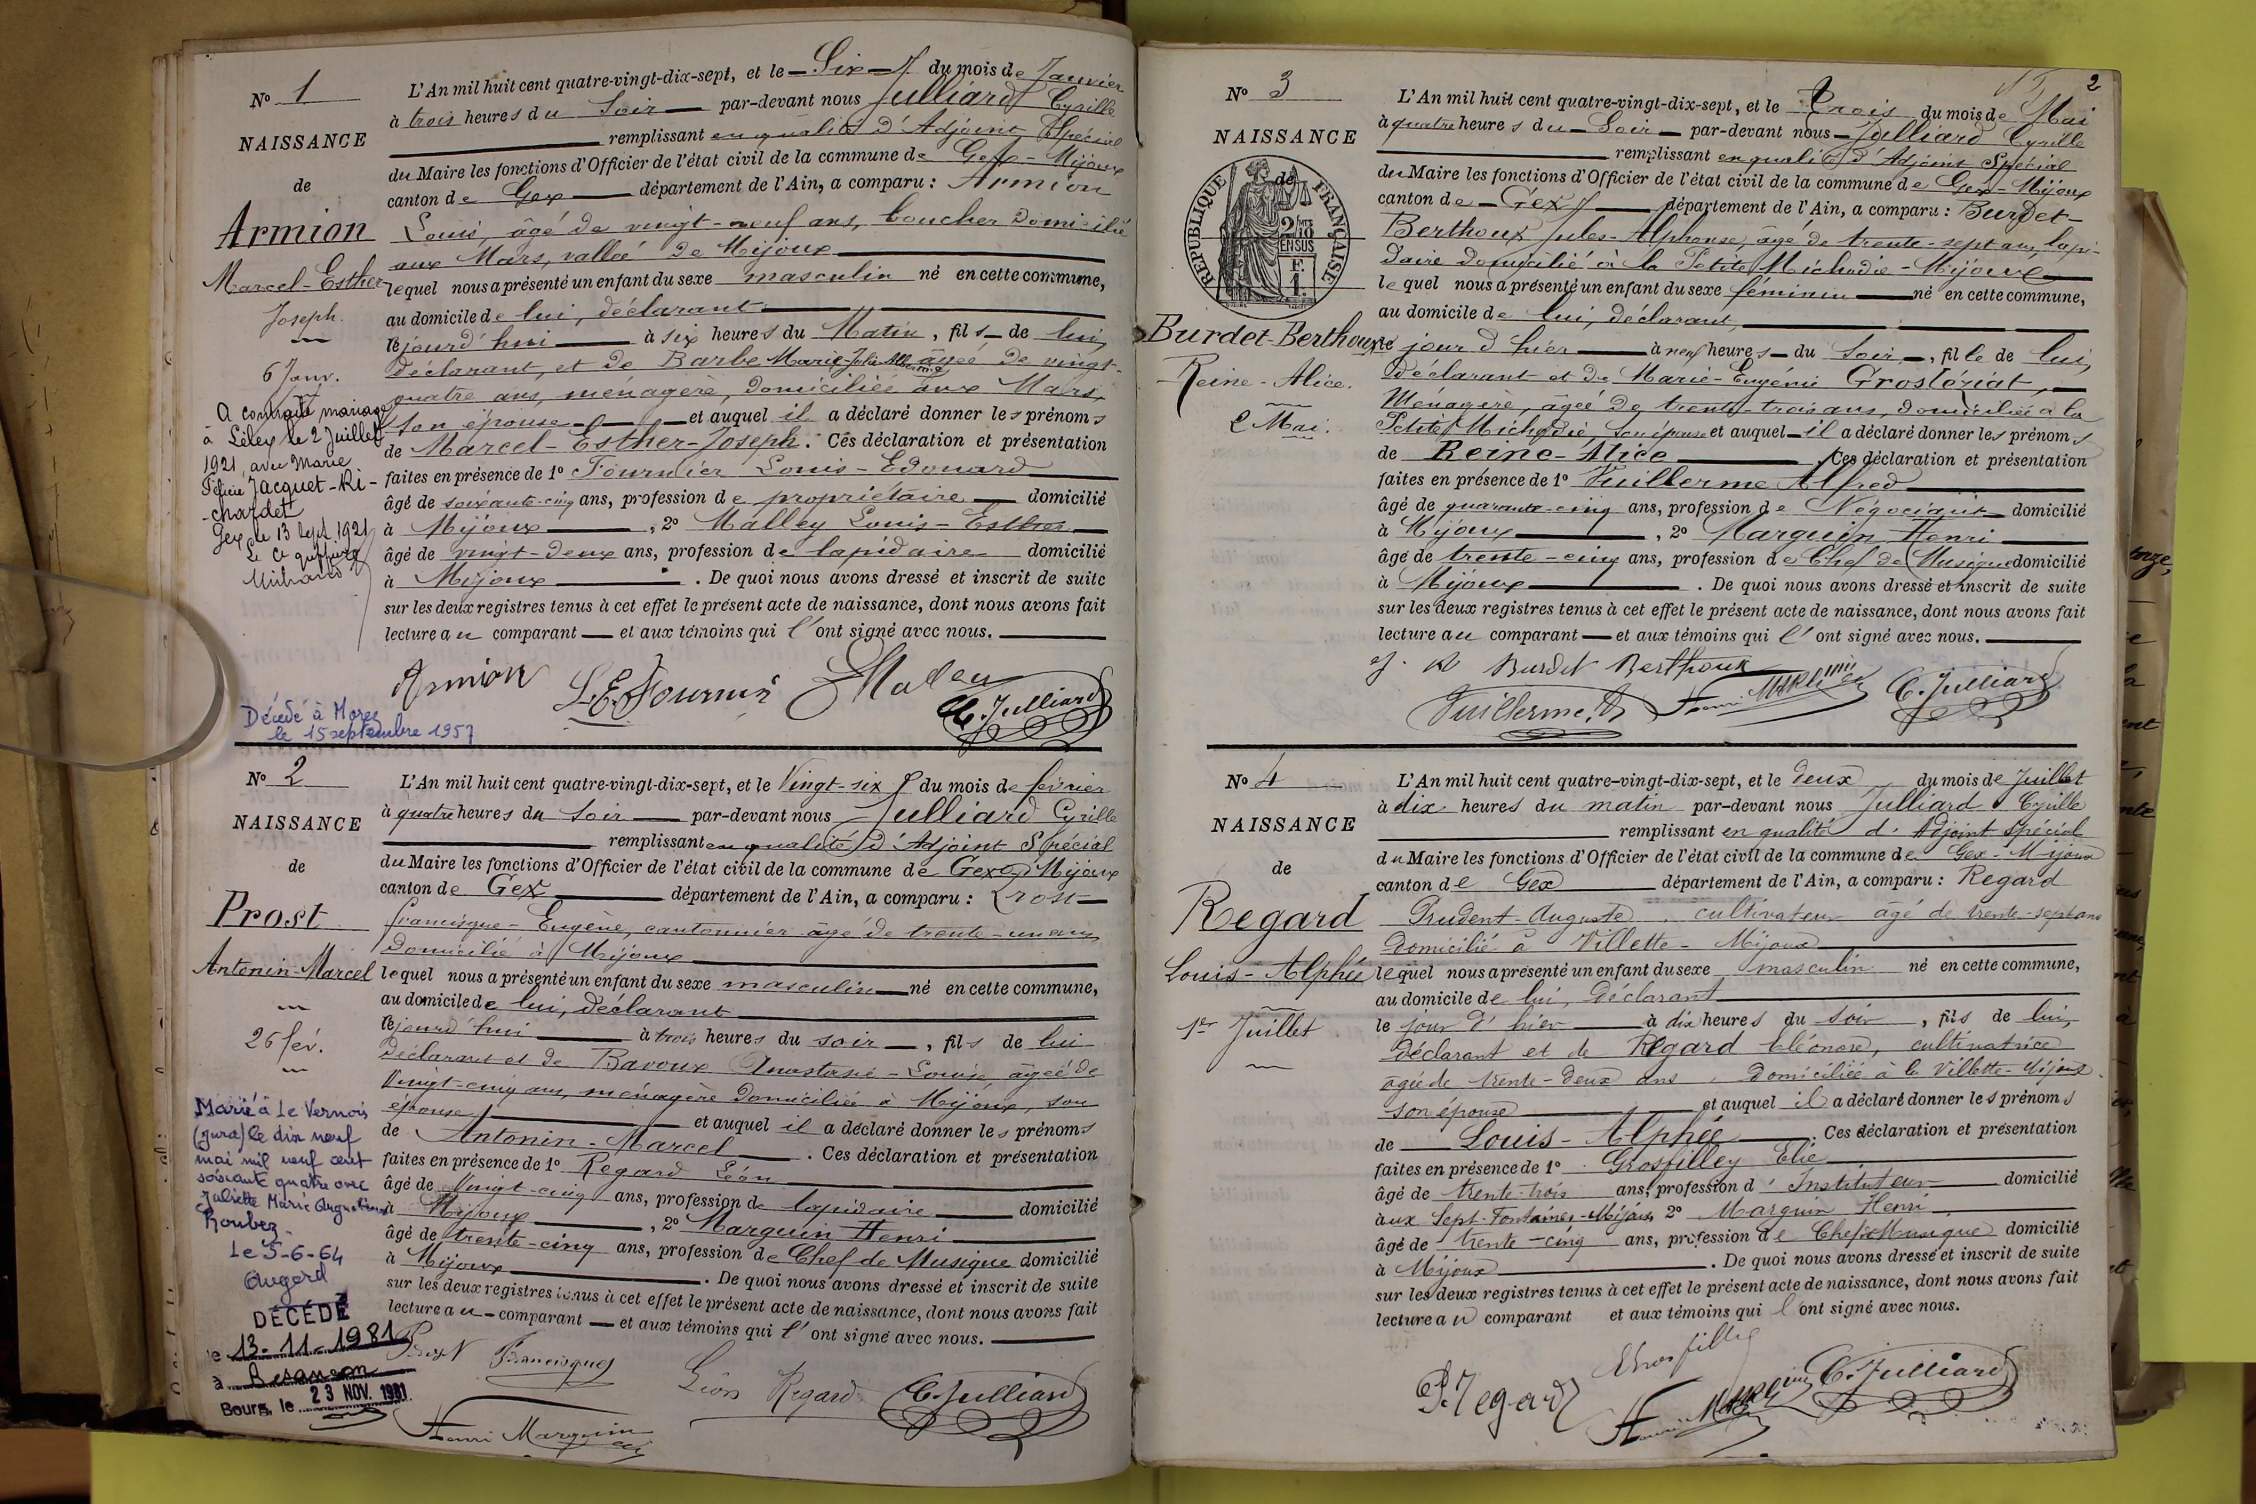 N° 1
NAISSANCE
de
Armion
Marcel-Esther
Joseph.
6 Janv.
A contracté mariage
à Lélex le 2 Juillet
1921 avec Marie
Félicie Jacquet-Ri-
-chardet
Gex le 13 Sept 1921
Le Cs greffier
Décédé à Morez
le 15 septembre 1957
L'An mil huit cent quatre-vingt-dix-sept, et le Six du mois de Janvier
à trois heures du Soir par-devant nous Julliard Cyrille
remplissant en qualité d'Adjoint Spécial
du Maire les fonctions d'Officier de l'état civil de la commune de Gex-Mijoux
canton de Gex département de l'Ain, a comparu : Armion
Louis, âgé de vingt-neuf ans, boucher domicilié
aux Mars, vallée de Mijoux
lequel nous a présenté un enfant du sexe masculin né en cette commune,
au domicile de lui, déclarant
le jourd'hui à six heures du Matin, fils de lui,
déclarant, et de Barbe Marie-Julie âgée de vingt-
quatre ans, ménagère, domiciliée aux Mars,
son épouse et auquel il a déclaré donner les prénoms
de Marcel-Esther-Joseph. Ces déclaration et présentation
faites en présence de 1° Fournier Louis-Edouard
âgé de soixante-cinq ans, profession de propriétaire domicilié
à Mijoux, 2° Malley Louis-Esther
âgé de vingt-deux ans, profession de lapidaire domicilié
à Mijoux. De quoi nous avons dressé et inscrit de suite
sur les deux registres tenus à cet effet le présent acte de naissance, dont nous avons fait
lecture au comparant et aux témoins qui l'ont signé avec nous.
Armion L.E. Fournier Malley C. Julliard
N° 2
NAISSANCE
de
Prost
Antonin-Marcel
26 fév.
Marié à Le Vernois
(Jura) le dix neuf
mai mil neuf cent
soixante quatre avec
Juliette Marie Augustine
Roubez
Le 5-6-64
Augerd
DÉCÉDÉ
le 13-11-1981
à Besançon
Bourg, le 23 NOV. 1981
L'An mil huit cent quatre-vingt-dix-sept, et le Vingt-six du mois de février
à quatre heures du Soir par-devant nous Julliard Cyrille
remplissant en qualité d'Adjoint Spécial
du Maire les fonctions d'Officier de l'état civil de la commune de Gex-Mijoux
canton de Gex département de l'Ain, a comparu : Prost
francisque-Eugène, cantonnier âgé de trente-un ans
domicilié à Mijoux
lequel nous a présenté un enfant du sexe masculin né en cette commune,
au domicile de lui, déclarant
le jourd'hui à trois heures du soir, fils de lui
déclarant et de Bavoux Anastasie-Louise, âgée de
vingt-cinq ans, ménagère domiciliée à Mijoux, son
épouse et auquel il a déclaré donner les prénoms
de Antonin-Marcel. Ces déclaration et présentation
faites en présence de 1° Regard Léon
âgé de vingt-cinq ans, profession de lapidaire domicilié
à Mijoux, 2° Marquin Henri
âgé de trente-cinq ans, profession de Chef de Musique domicilié
à Mijoux. De quoi nous avons dressé et inscrit de suite
sur les deux registres tenus à cet effet le présent acte de naissance, dont nous avons fait
lecture au comparant et aux témoins qui l'ont signé avec nous.
Prost Francisque Léon Regard C. Julliard
Henri Marquin
2
N° 3
NAISSANCE
de
RÉPUBLIQUE FRANÇAISE
2/10
EN SUS
E.
1
Burdet-Berthoux
Reine-Alice.
2 Mai.
L'An mil huit cent quatre-vingt-dix-sept, et le Trois du mois de Mai
à quatre heures du Soir par-devant nous Julliard Cyrille
remplissant en qualité d'Adjoint Spécial
du Maire les fonctions d'Officier de l'état civil de la commune de Gex-Mijoux
canton de Gex département de l'Ain, a comparu : Burdet-
Berthoux Jules-Alphonse, âgé de trente-sept ans, lapi-
daire domicilié à la Petite Michodie-Mijoux
lequel nous a présenté un enfant du sexe féminin né en cette commune,
au domicile de lui, déclarant,
le jour d'hier à neuf heures du Soir, fille de lui,
déclarant et de Marie-Eugénie Grostéziat,
Ménagère, âgée de trente-trois ans, domiciliée à la
Petite Michodie, son épouse et auquel il a déclaré donner les prénoms
de Reine-Alice. Ces déclaration et présentation
faites en présence de 1° Vuillerme Alfred
âgé de quarante-cinq ans, profession de Négociant domicilié
à Mijoux, 2° Marquin Henri
âgé de trente-cinq ans, profession de Chef de Musique domicilié
à Mijoux. De quoi nous avons dressé et inscrit de suite
sur les deux registres tenus à cet effet le présent acte de naissance, dont nous avons fait
lecture au comparant et aux témoins qui l'ont signé avec nous.
Burdet Berthoux
Vuillerme A Henri Marquin C. Julliard
N° 4
NAISSANCE
de
Regard
Louis-Alphée
1er Juillet
L'An mil huit cent quatre-vingt-dix-sept, et le deux du mois de Juillet
à dix heures du matin par-devant nous Julliard Cyrille
remplissant en qualité d'Adjoint Spécial
du Maire les fonctions d'Officier de l'état civil de la commune de Gex-Mijoux
canton de Gex département de l'Ain, a comparu : Regard
Prudent-Auguste, cultivateur âgé de trente-sept ans
domicilié à Villette-Mijoux
lequel nous a présenté un enfant du sexe masculin né en cette commune,
au domicile de lui, déclarant
le jour d'hier à dix heures du soir, fils de lui,
déclarant et de Regard Eléonore, cultivatrice
âgée de trente-deux ans, domiciliée à la Villette-Mijoux
son épouse et auquel il a déclaré donner les prénoms
de Louis-Alphée. Ces déclaration et présentation
faites en présence de 1° Grosfilley Elie
âgé de trente-trois ans, profession d'Instituteur domicilié
aux Sept-Fontaines-Mijoux 2° Marquin Henri
âgé de trente-cinq ans, profession de Chef de Musique domicilié
à Mijoux. De quoi nous avons dressé et inscrit de suite
sur les deux registres tenus à cet effet le présent acte de naissance, dont nous avons fait
lecture au comparant et aux témoins qui l'ont signé avec nous.
Grosfilley
P. Regard Henri Marquin C. Julliard